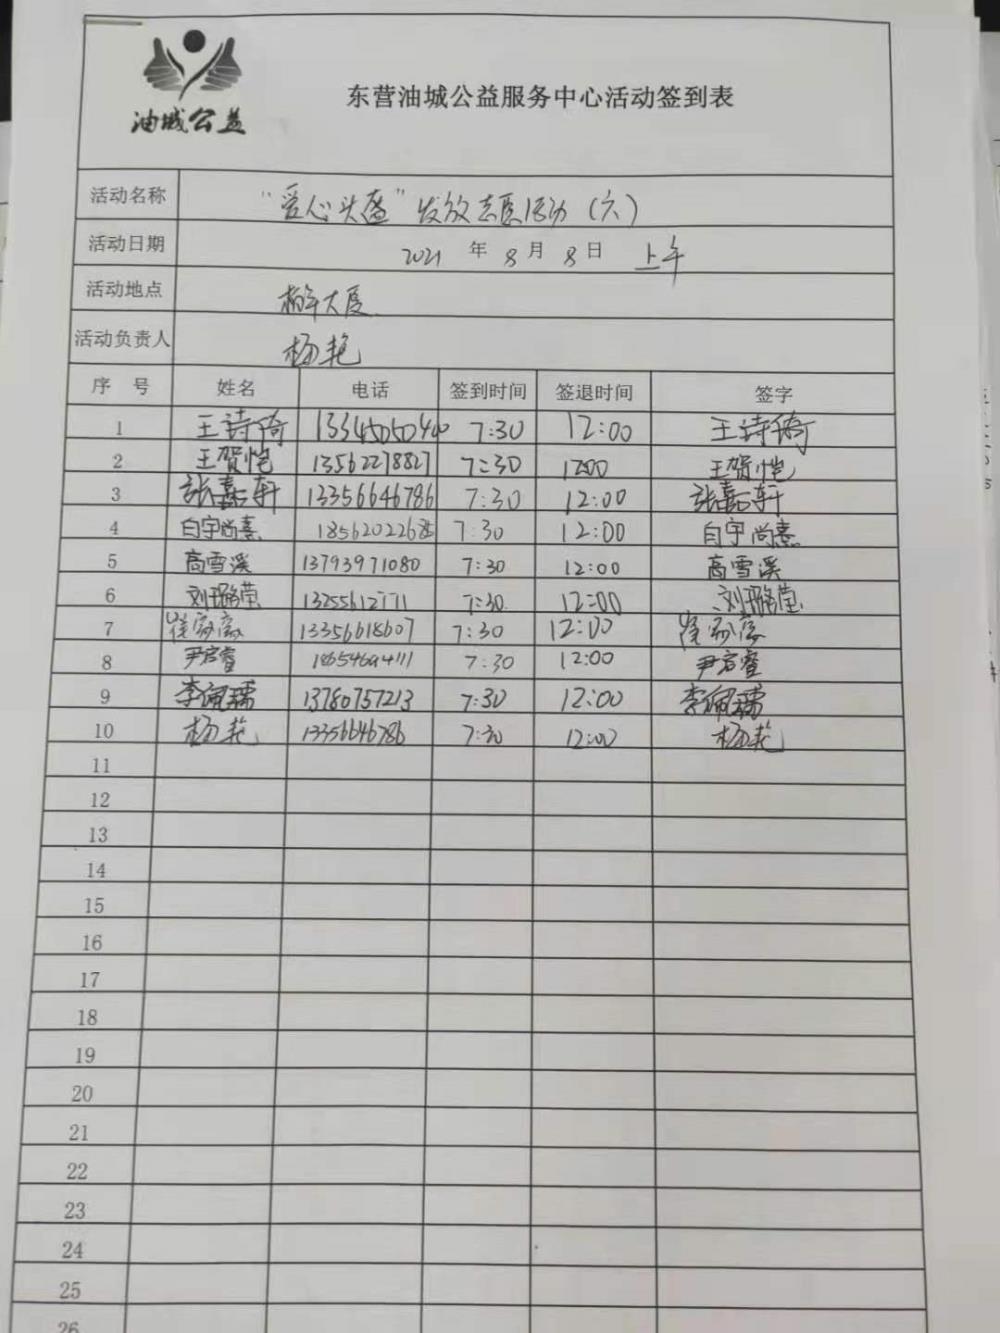 油城公益
东营油城公益服务中心活动签到表
活动名称 "爱心头盔"发放志愿活动（六）
活动日期 2021 年 8 月 8 日 上午
活动地点 大厦
活动负责人 杨艳
序 号 姓名 电话 签到时间 签退时间 签字
1 王诗琦 7:30 12:00 王诗琦
2 王贺恺 13562278827 7:30 12:00 王贺恺
3 张嘉轩 13356646786 7:30 12:00 张嘉轩
4 白宇尚熹 7:30 12:00 白宇尚熹
5 高雪溪 13793971080 7:30 12:00 高雪溪
6 刘璐莹 7:30 12:00 刘璐莹
7 崔 13356618607 7:30 12:00 崔
8 尹启睿 7:30 12:00 尹启睿
9 李佩孺 13780757213 7:30 12:00 李佩孺
10 杨艳 13356646786 7:30 12:00 杨艳
11
12
13
14
15
16
17
18
19
20
21
22
23
24
25
26